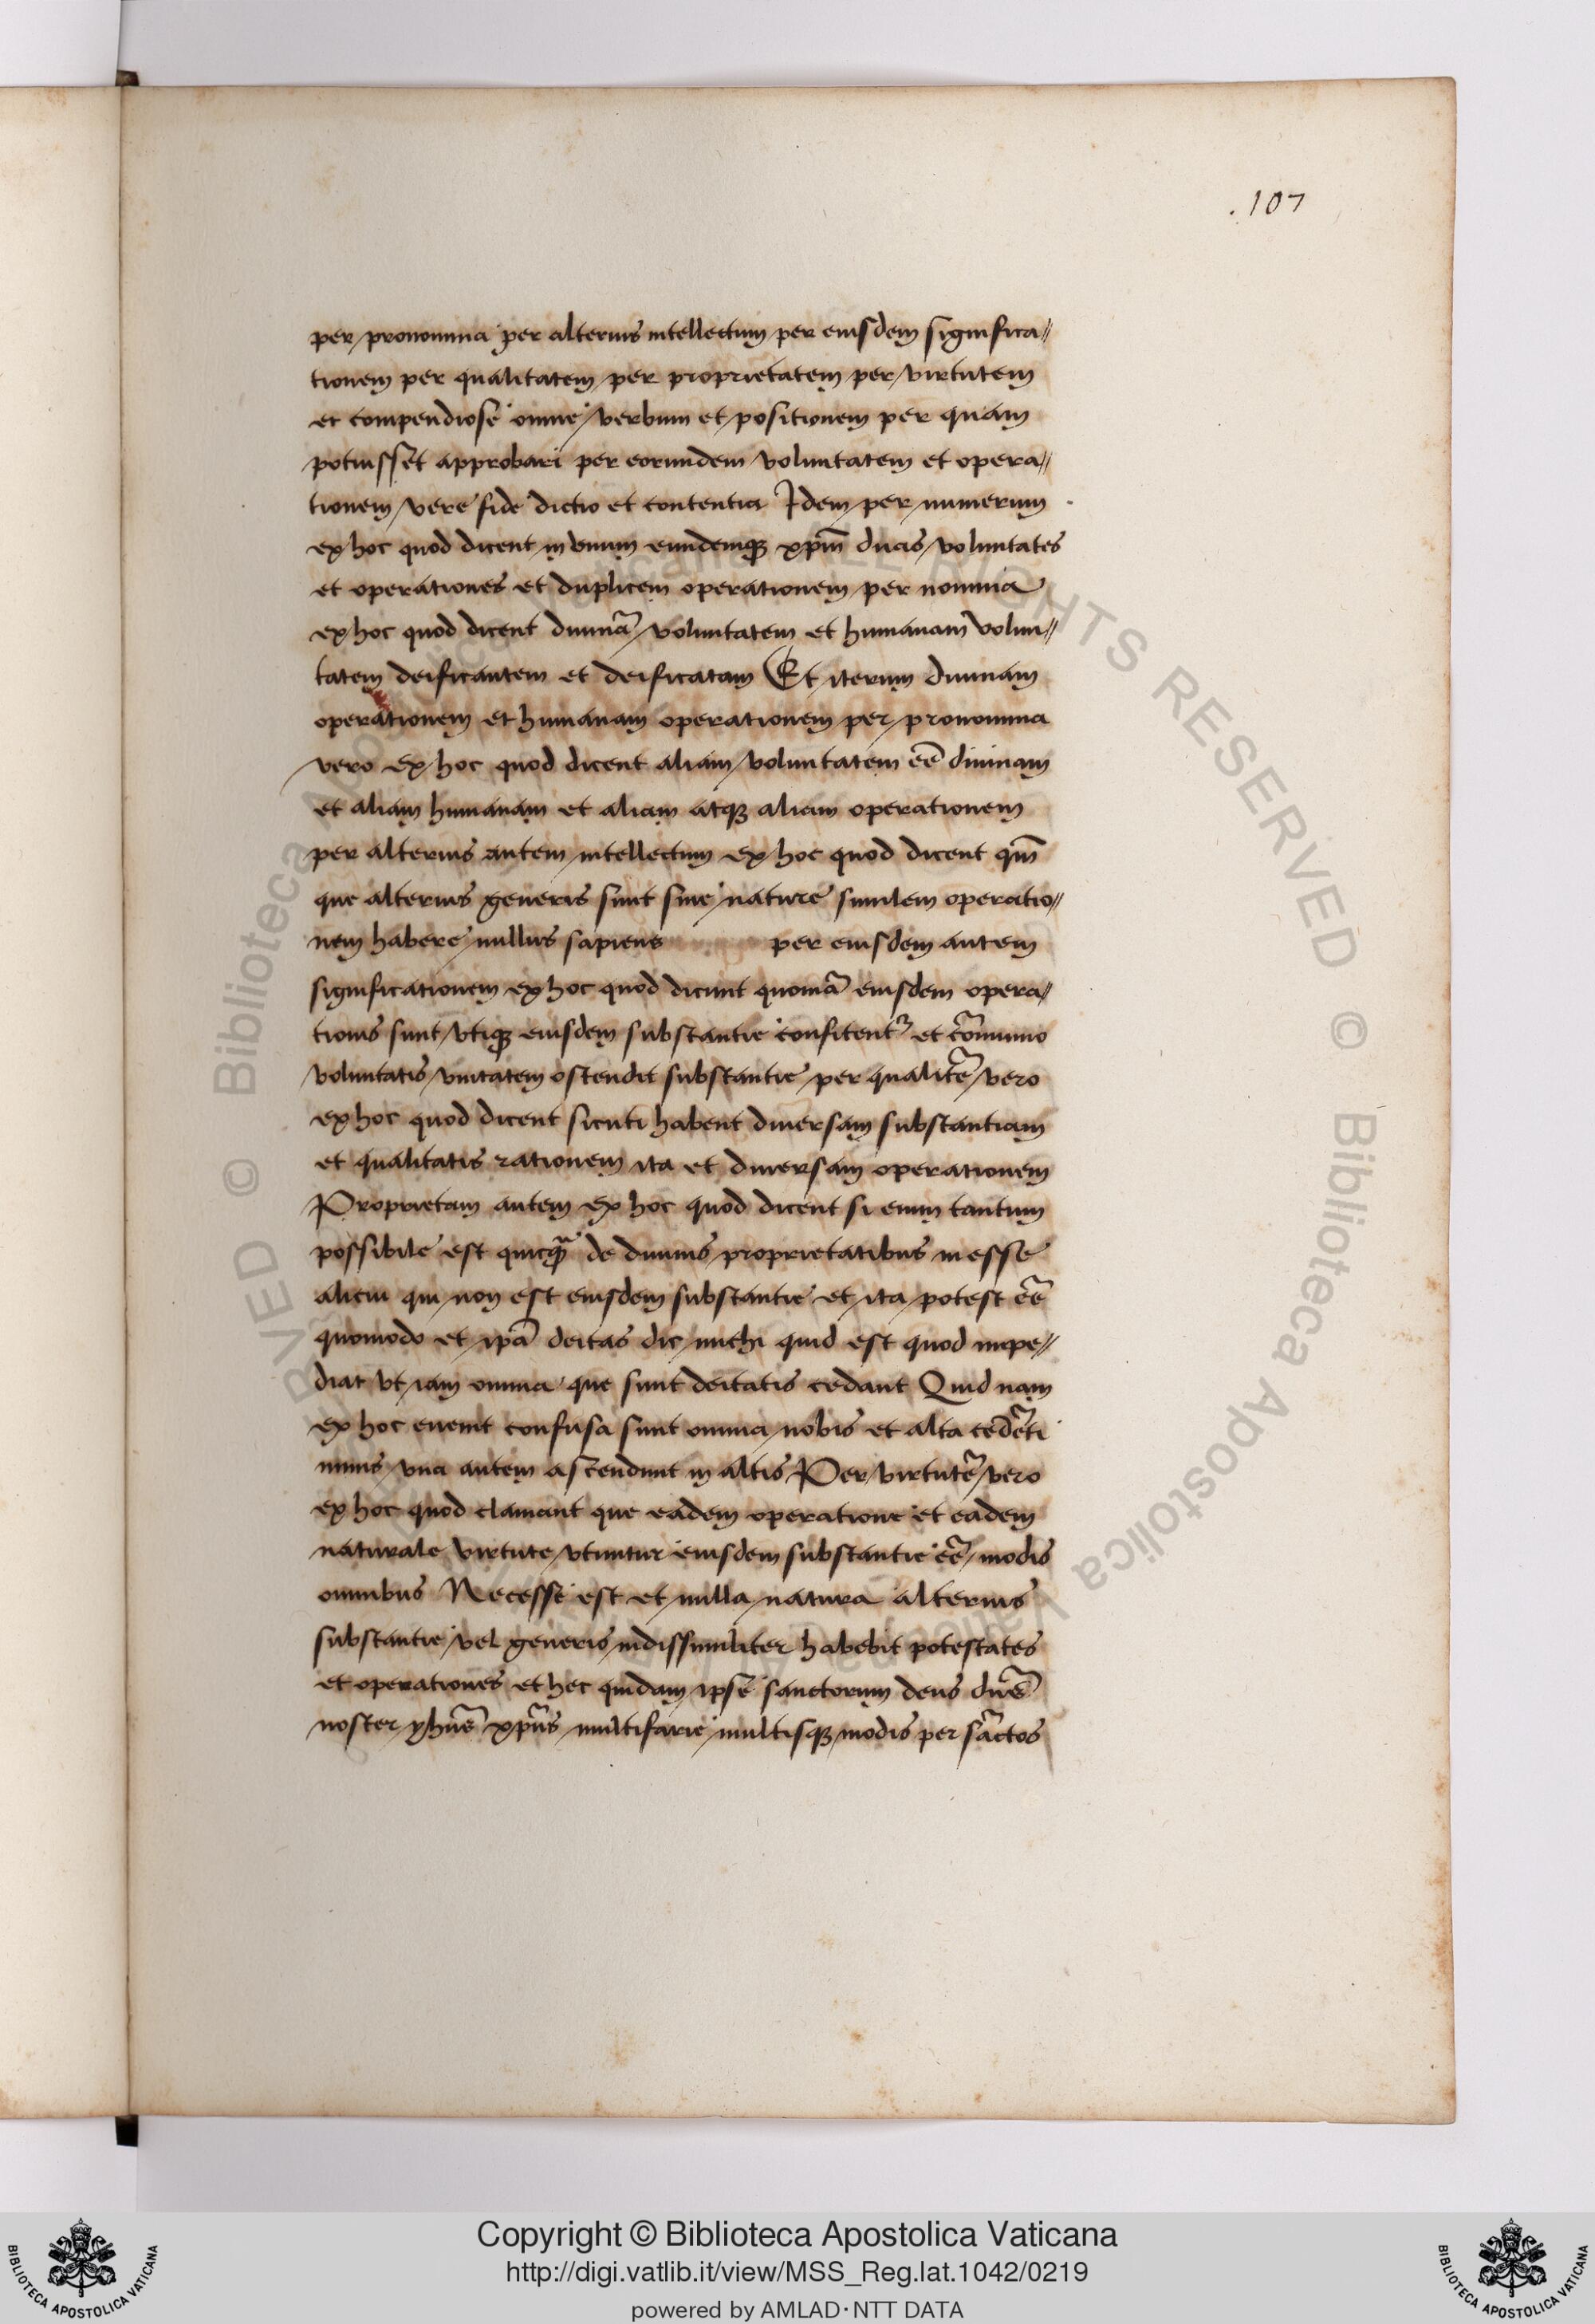 .107
per pronomina per alterius intellectum per eiusdem significa//
tionem per qualitatem per proprietatem per virtutem
et compendiose omne verbum et positionem per quam
potuisset approbari per eorundem voluntatem et opera//
tionem vere fide dictio et contentia Idem per numerum
ex hoc quod dicent in vnum eundemqȝ xp̄m duas voluntates
et operationes et duplicem operationem per nomina
ex hoc quod dicent diuinā voluntatem et humanam volun//
tatem deificantem et deificatam Et iterum diuinam
operationem et humanam operationem per pronomina
vero ex hoc quod dicent aliam voluntatem eē diuinam
et aliam humanam et aliam atqȝ aliam operationem
per alterius autem intellectum ex hoc quod dicent qm̄
que alterius generis sunt siue nature similem operatio//
nem habere nullus sapiens per eiusdem autem
significationem ex hoc quod dicunt quoniā eiusdem opera//
tionis sunt vtiqȝ eiusdem substantie confitent᷑ et cōmunio
voluntatis vnitatem ostendit substantie per qualitē vero
ex hoc quod dicent sicuti habent diuersam substantiam
et qualitatis rationem ita et diuersam operationem
Proprietam autem ex hoc quod dicent si enim tantum
possibile est quicqȝā de diuinis proprietatibus inesse
alicui qui non est eiusdem substantie et ita potest eē
quomodo et ipā deitas dic michi quid est quod impe//
diat vt iam omnia que sunt deitatis cedant Quid nam
ex hoc euenit confusa sunt omnia nobis et alta cedēti
nimis vna autem ascendunt in altis Per virtutē vero
ex hoc quod clamant que eadem operatione et eadem
naturale virtute vtuntur eiusdem substantie eē modis
omnibus Necesse est et nulla natura alterius
substantie vel generis indissimiliter habebit potestates
et operationes et hec quidam ipse sanctorum deus dn̄s
noster yhūs xp̄us multifarie multisqȝ modis per sāctos
Copyright © Biblioteca Apostolica Vaticana
http://digi.vatlib.it/view/MSS_Reg.lat.1042/0219
powered by AMLAD·NTT DATA
BIBLIOTECA APOSTOLICA VATICANA
BIBLIOTECA APOSTOLICA VATICANA